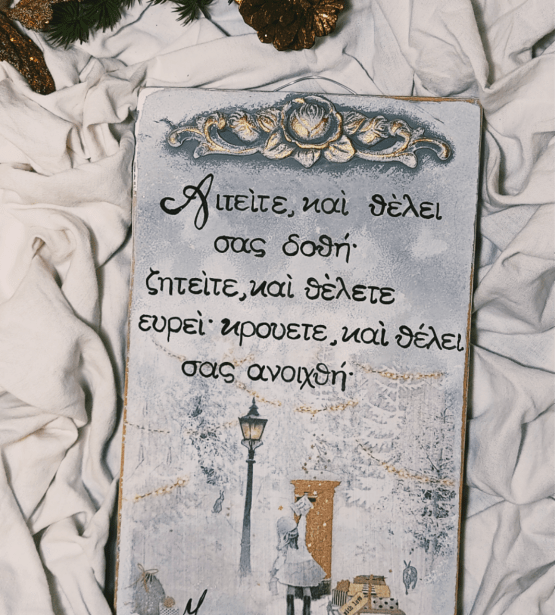 Αιτεὶτε, καὶ θὲλει
σας δοθή·
ζητεὶτε, καὶ θὲλετε
ευρεὶ· κρουετε, καὶ θέλει
σας ανοιχθή·